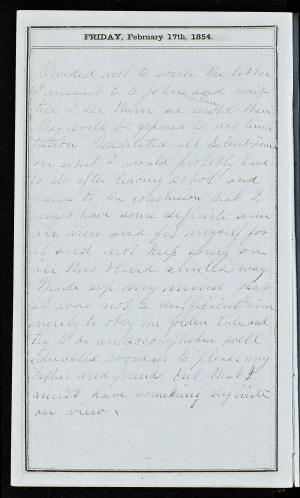 FRIDAY, February 17th, 1854.
Decided not to write the letter
I meant to to John, and wait
till I see them as until then
they will be exposed to no temp
tation. Meditated all detention time
on what I would probably have
to do after leaving school and
came to the conclusion that I
must have some definite aim
in view and fix myself for
it and not keep going on
in this blind similar way.
Made up my mind that
it was not a sufficient aim
merely to obey the Golden Rule and
try to be an accomplished well
educated woman to please my
father and friends but that I
must have something definite
in view.